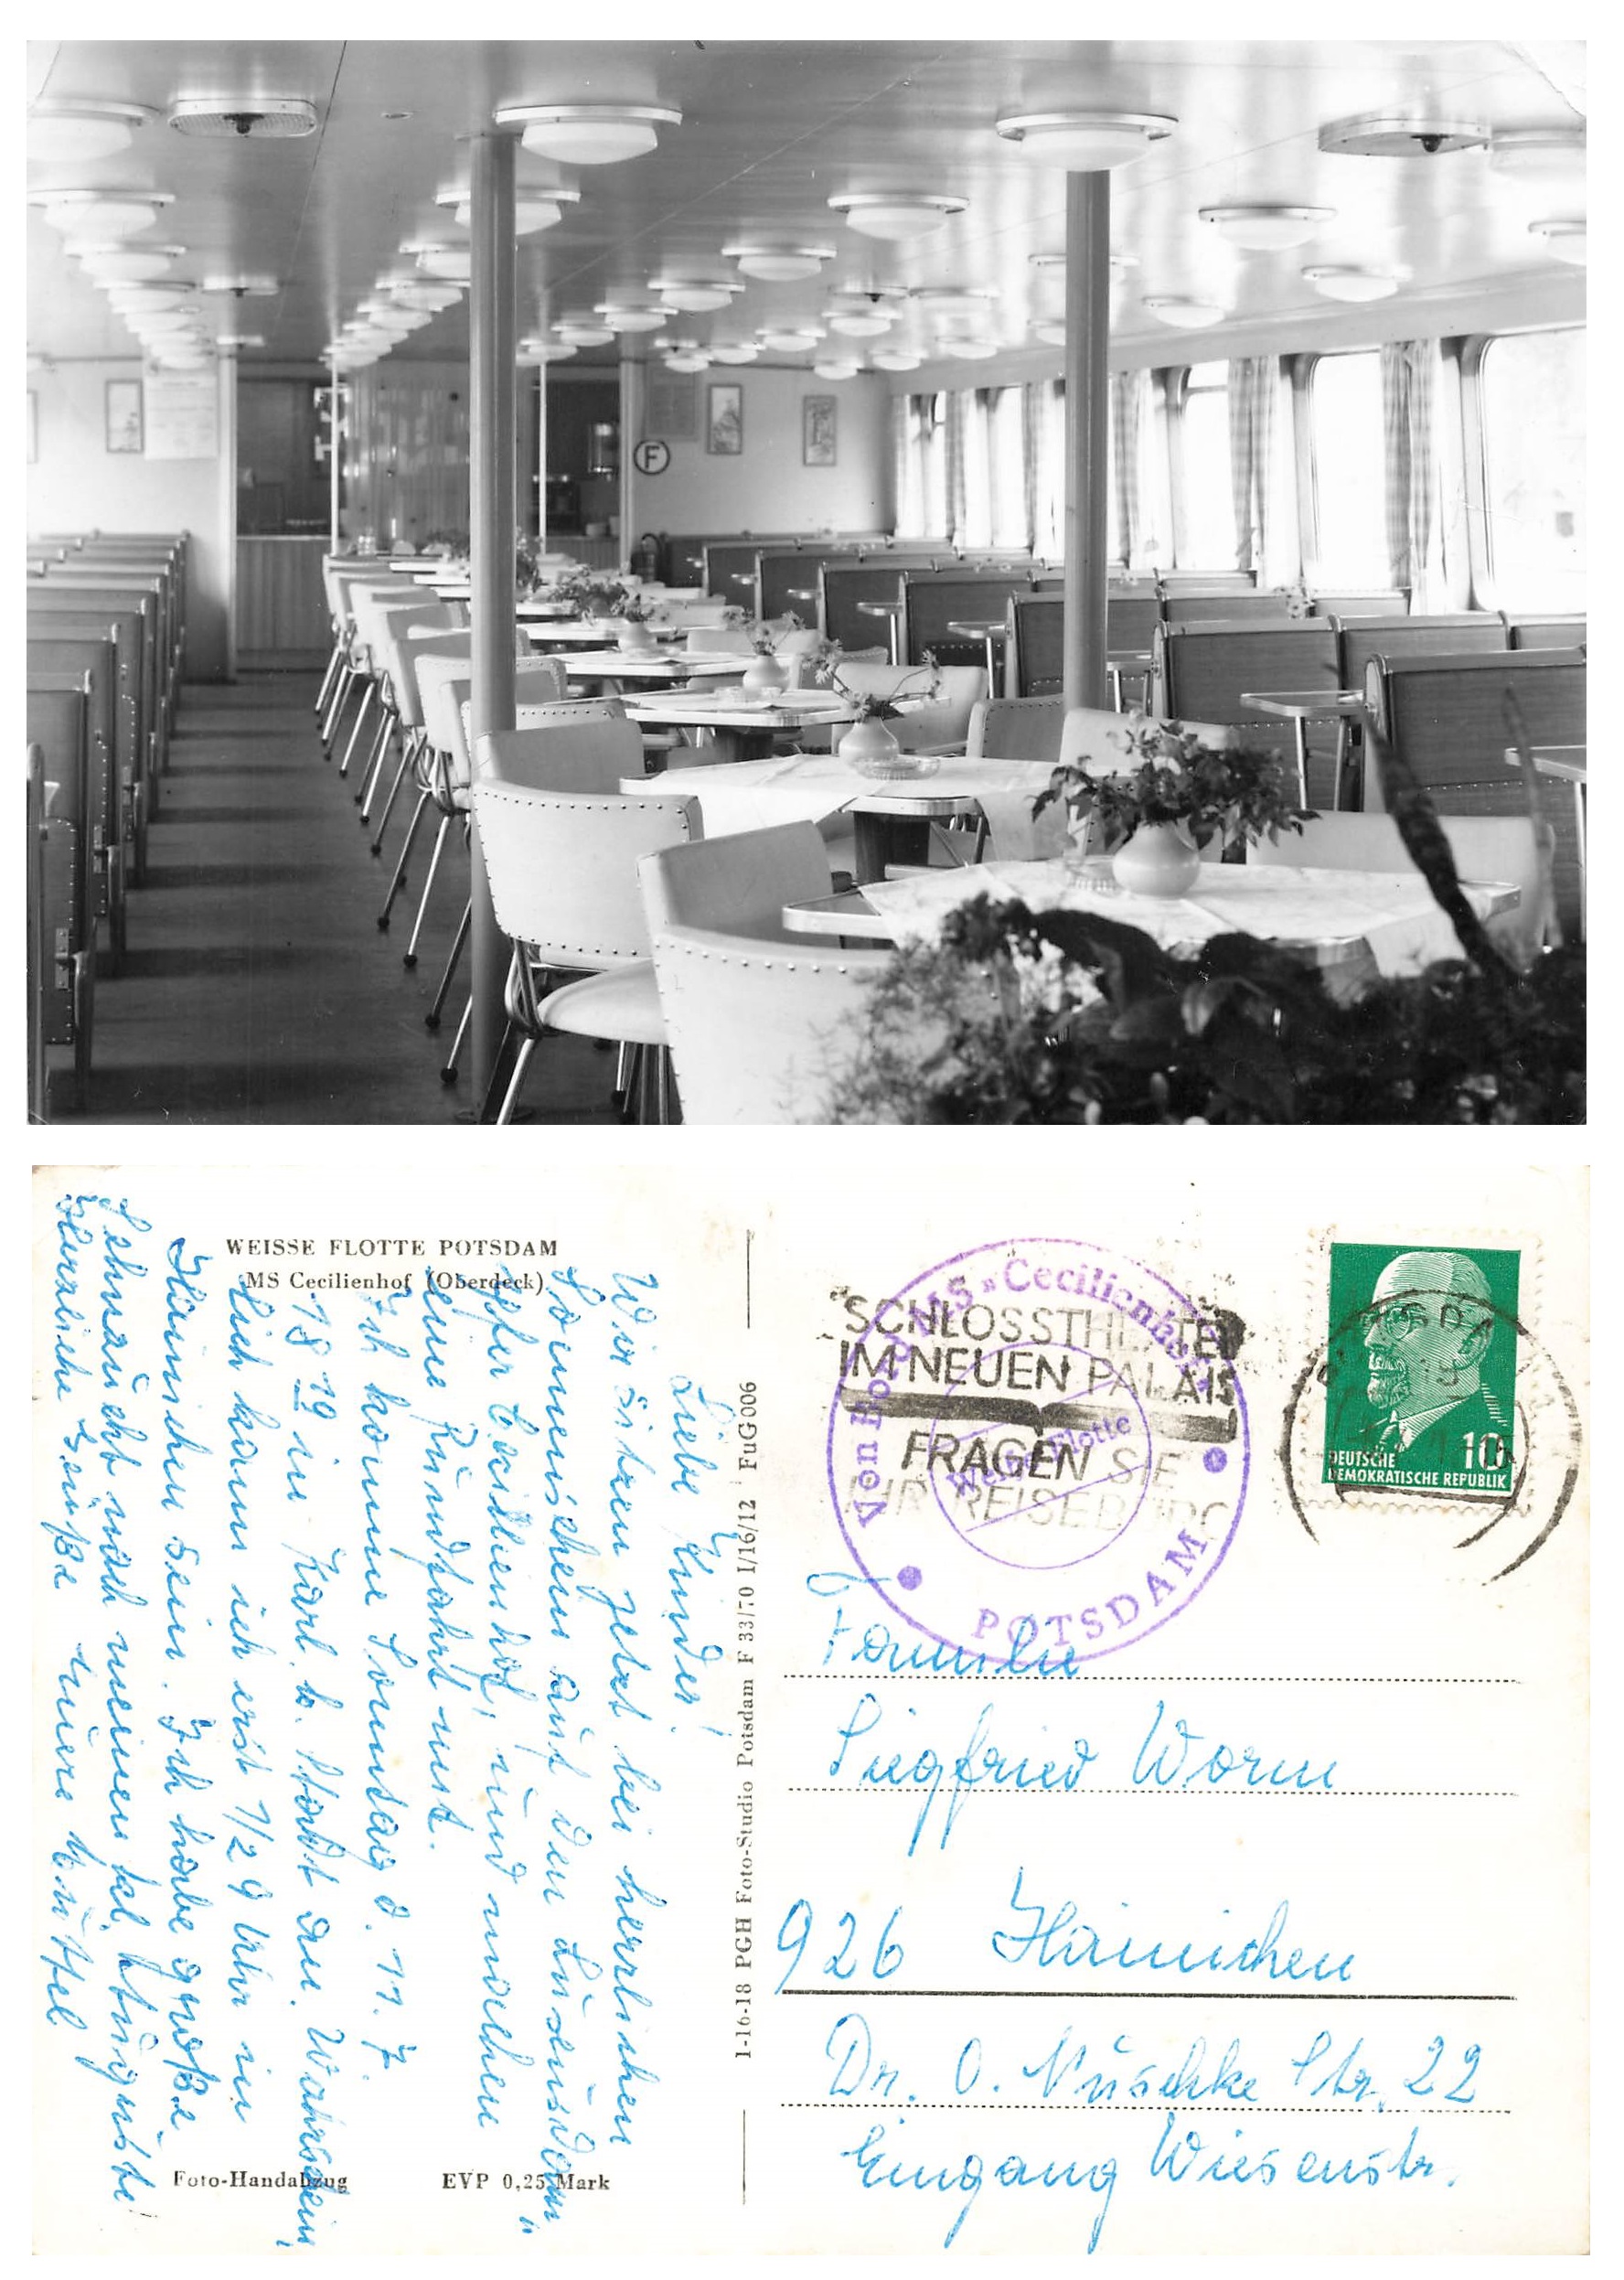 F
WEISSE FLOTTE POTSDAM
MS Cecilienhof (Oberdeck)
Liebe Kinder!
Wir sitzen jetzt bei herrlichen
Sonnenschein auf den
"Cecilienhof" und machen
eine Rundfahrt mit.
Ich komme Sonntag d. 11. 7.
18 19 in Karl-M. Stadt an. Wahrschein,
lich kann ich erst 1/2 9 Uhr in
Hainichen sein. Ich habe große
Sehnsucht nach meinen
Herzliche Grüße Eure Mutter
Foto-Handabzug
EVP 0,25 Mark
1-16-18 PGH Foto-Studio Potsdam F 33/70 I/16/12 FuG006
Von Bord MS »Cecilienhof«
Weiße Flotte
POTSDAM
SCHLOSSTHEATER
IM NEUEN PALAIS
FRAGEN SIE
IHR REISEBÜRO
DEUTSCHE
DEMOKRATISCHE REPUBLIK
10
Familie
Siegfried Worm
926 Hainichen
Dr. O. Nuschke Str. 22
Eingang Wiesenstr.